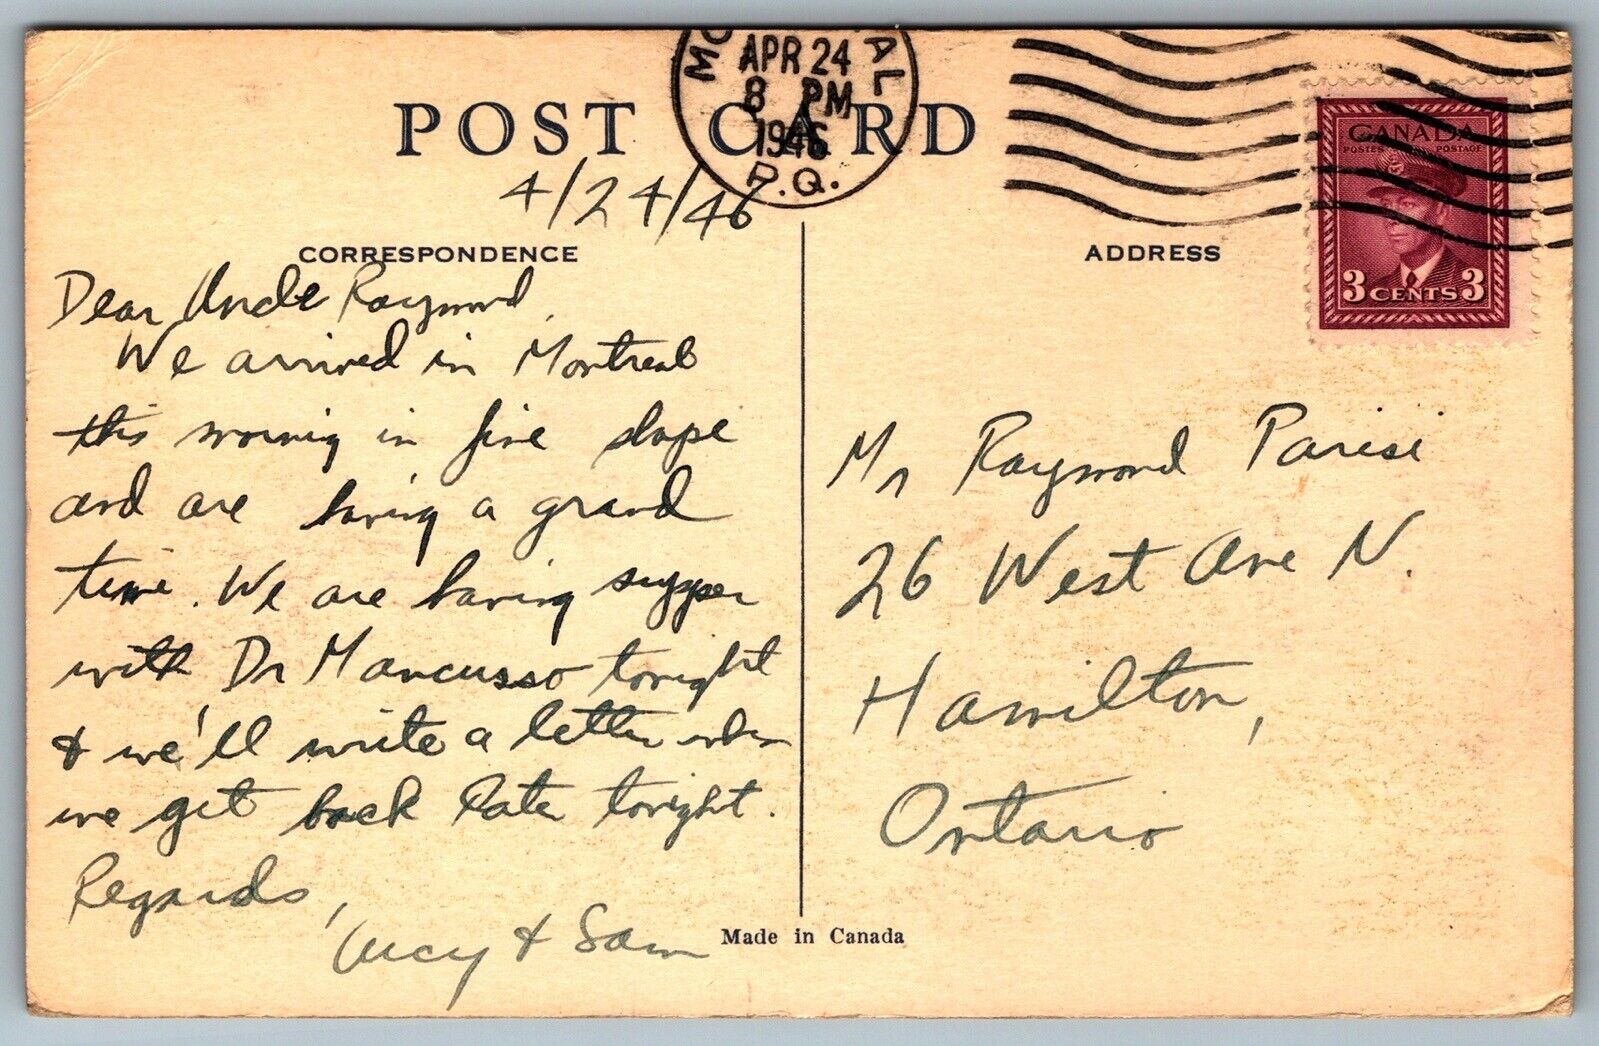 MO AL
APR 24
8 PM
1946
P.Q.
POST CARD
4/24/46
CORRESPONDENCE
Dear Uncle Raymond,
We arrived in Montreal
this morning in fine shape
and are having a grand
time. We are having supper
with Dr Mancusso tonight
& we'll write a letter when
we get back late tonight.
Regards,
Lucy & Sam
ADDRESS
CANADA
POSTES POSTAGE
3 CENTS 3
Mr Raymond Parisi
26 West Ave N.
Hamilton,
Ontario
Made in Canada